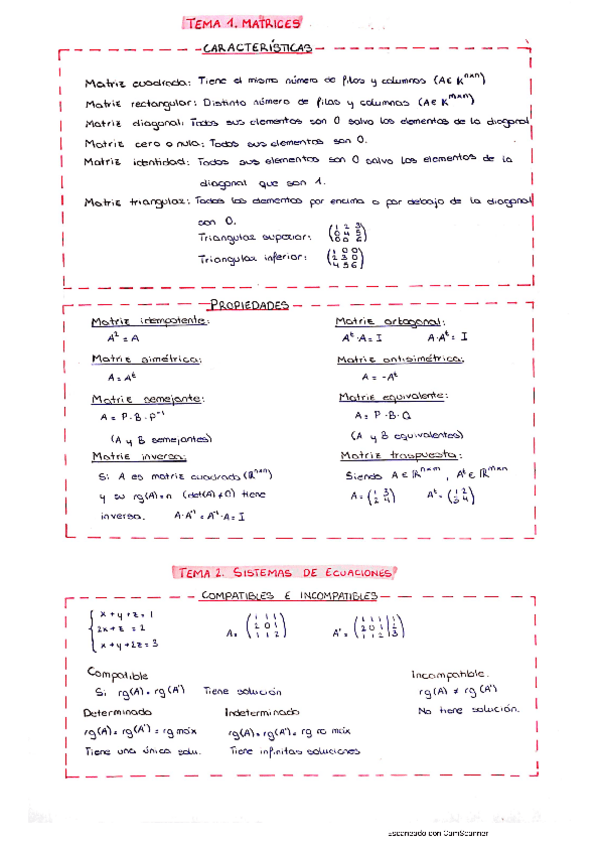 TEMA 1. MATRICES
CARACTERÍSTICAS
Matriz cuadrada: Tiene el mismo número de filas y columnas (A∈ K^n×n)
Matriz rectangular: Distinto número de filas y columnas (A∈ K^m×n)
Matriz diagonal: Todos sus elementos son 0 salvo los elementos de la diagonal
Matriz cero o nula: Todos sus elementos son 0.
Matriz identidad: Todos sus elementos son 0 salvo los elementos de la
diagonal que son 1.
Matriz triangular: Todos los elementos por encima o por debajo de la diagonal
son 0.
Triangular superior: (1 2 3 / 0 4 5 / 0 0 6)
Triangular inferior: (1 0 0 / 2 3 0 / 4 5 6)
PROPIEDADES
Matriz idempotente:
A² = A
Matriz ortogonal:
A^t·A = I A·A^t = I
Matriz simétrica:
A = A^t
Matriz antisimétrica:
A = -A^t
Matriz semejante:
A = P·B·P^-1
(A y B semejantes)
Matriz equivalente:
A = P·B·Q
(A y B equivalentes)
Matriz inversa:
Si A es matriz cuadrada (R^n×n)
y su rg(A)=n (det(A)≠0) tiene
inversa. A·A^-1 = A^-1·A = I
Matriz traspuesta:
Siendo A∈ R^n×m, A^t∈ R^m×n
A = (1 3 / 2 4) A^t = (1 2 / 3 4)
TEMA 2. SISTEMAS DE ECUACIONES
COMPATIBLES E INCOMPATIBLES
x+y+z=1
2x+z=2
x+y+2z=3
A= (1 1 1 / 2 0 1 / 1 1 2) A'= (1 1 1 | 1 / 2 0 1 | 2 / 1 1 2 | 3)
Compatible
Si rg(A) = rg(A') Tiene solución
Incompatible.
rg(A) ≠ rg(A')
No tiene solución.
Determinado
rg(A) = rg(A') = rg máx
Tiene una única solu.
Indeterminado
rg(A) = rg(A') = rg no máx
Tiene infinitas soluciones
Escaneado con CamScanner